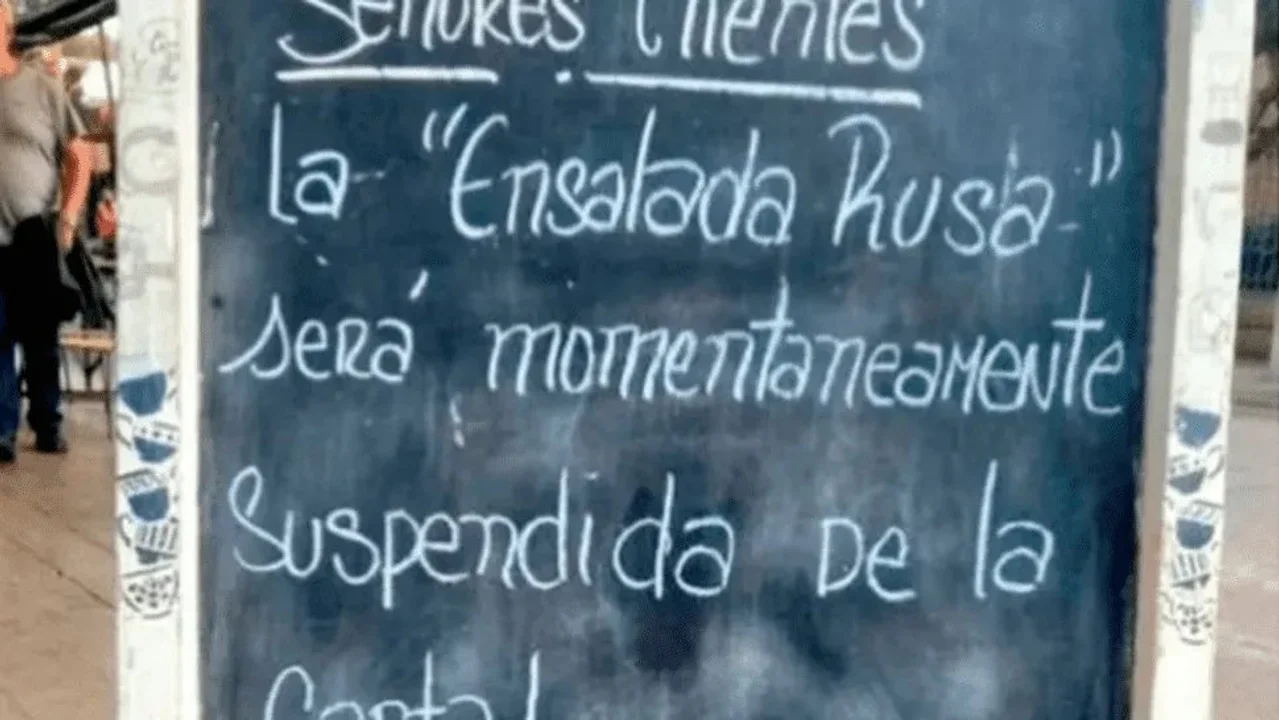 Señores Clientes
la "Ensalada Rusa"
será momentaneamente
Suspendida De la
Carta!